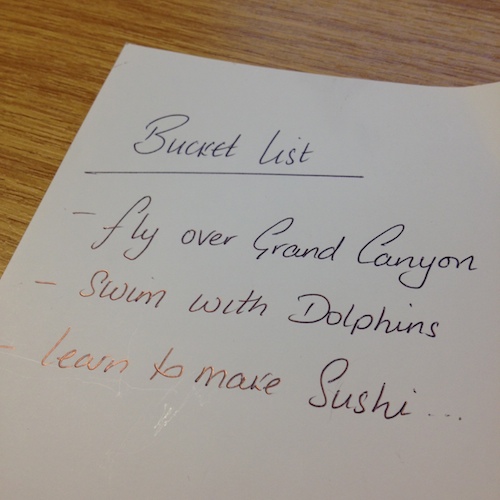 Bucket List
- fly over Grand Canyon
- Swim with Dolphins
- learn to make Sushi ...